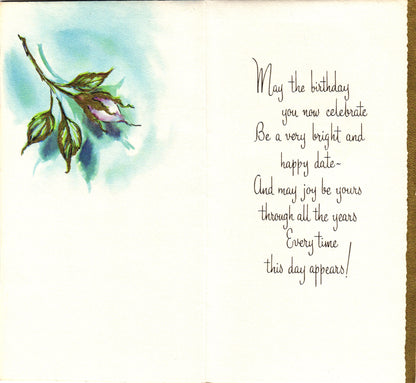 May the birthday
you now celebrate
Be a very bright and
happy date~
And may joy be yours
through all the years
Every time
this day appears!